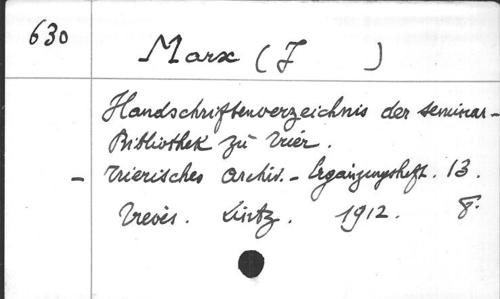 630
Marx (J )
Handschriftenverzeichnis der seminar-
Bibliothek zu Trier.
- Trierisches Archiv. - Ergänzungsheft. 13.
Trevès. Lintz. 1912. 8.